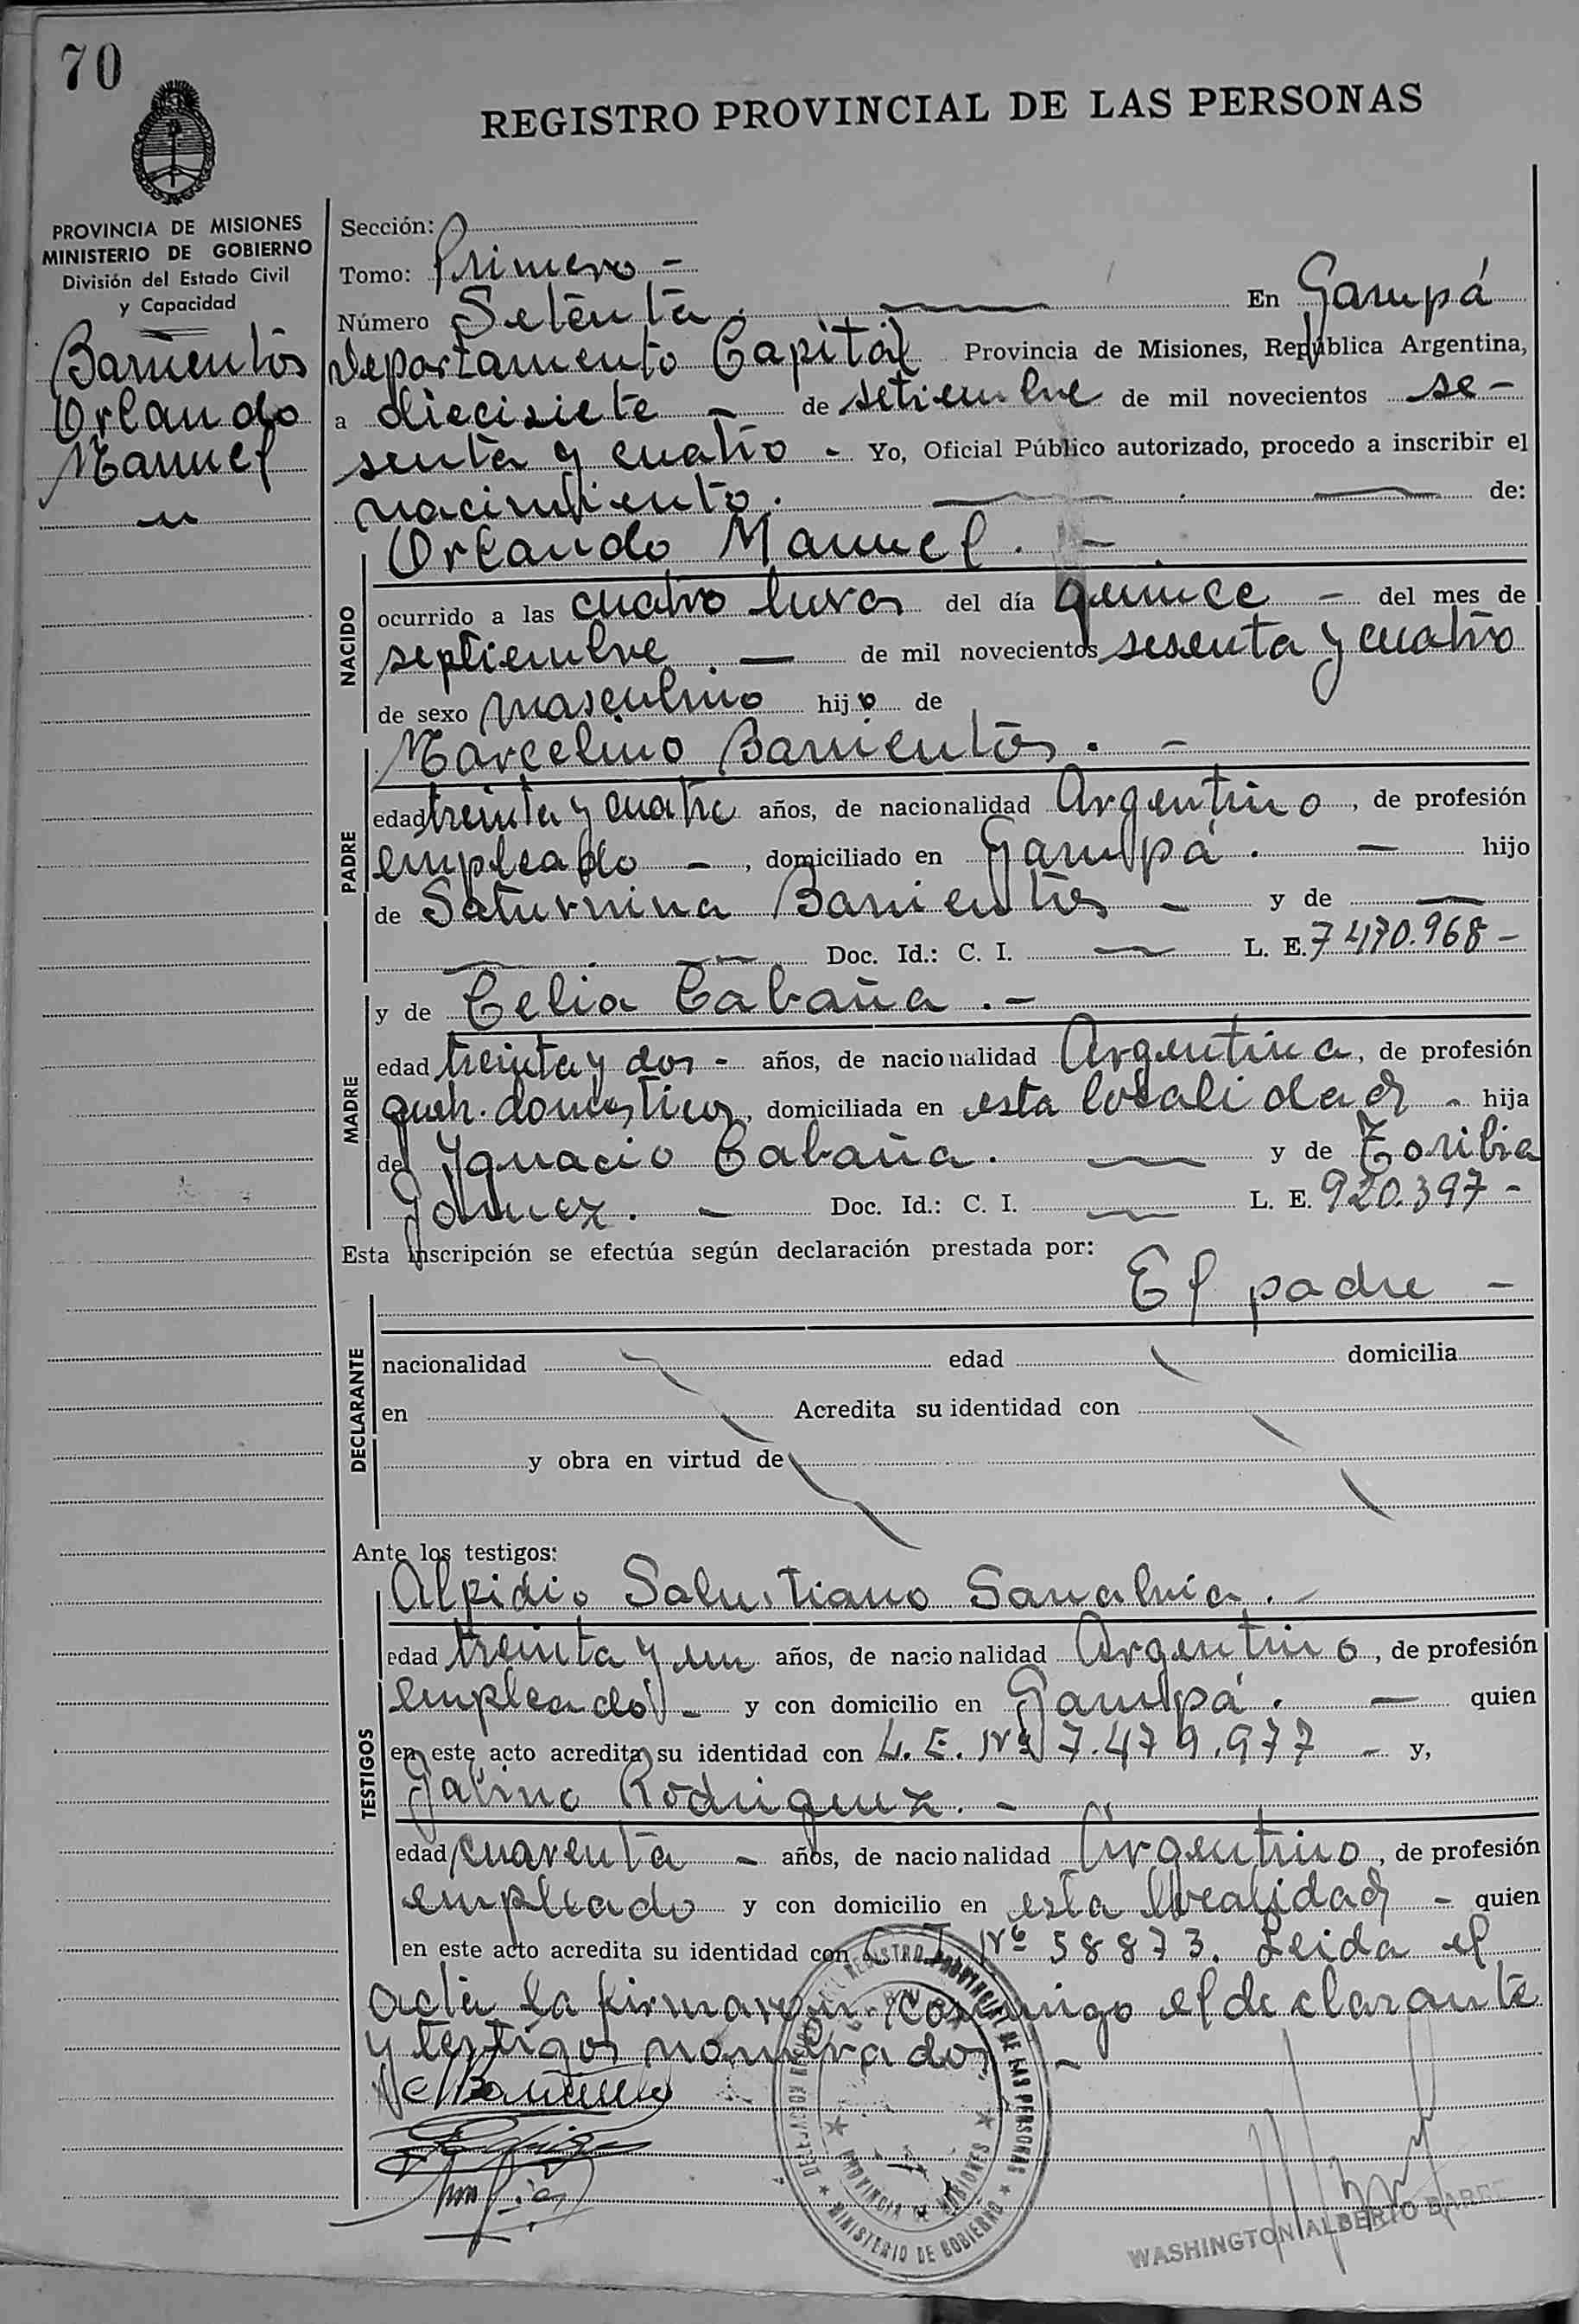 70
REGISTRO PROVINCIAL DE LAS PERSONAS
PROVINCIA DE MISIONES
MINISTERIO DE GOBIERNO
División del Estado Civil
y Capacidad
Barrientos
Orlando
Manuel
Sección:
Tomo: Primero -
Número Setenta. En Garupá
Departamento Capital Provincia de Misiones, República Argentina,
a diecisiete - de setiembre de mil novecientos se-
senta y cuatro - Yo, Oficial Público autorizado, procedo a inscribir el
nacimiento. de:
Orlando Manuel. -
NACIDO
ocurrido a las cuatro horas del día quince - del mes de
septiembre. - de mil novecientos sesenta y cuatro
de sexo masculino hijo de
Marcelino Barrientos. -
PADRE
edad treinta y cuatro años, de nacionalidad Argentino, de profesión
empleado -, domiciliado en Garupá. - hijo
de Saturnina Barrientos - y de
Doc. Id.: C. I. L. E. 7470.968 -
y de Celia Cabaña. -
MADRE
edad treinta y dos - años, de nacionalidad Argentina, de profesión
queh. domesticos, domiciliada en esta localidad - hija
de Ignacio Cabaña. y de Toribia
Gómez. - Doc. Id.: C. I. L. E. 920.397 -
Esta inscripción se efectúa según declaración prestada por:
El padre -
DECLARANTE
nacionalidad edad domicilia
en Acredita su identidad con
y obra en virtud de
Ante los testigos:
Alpidio Salustiano Sanabria. -
TESTIGOS
edad treinta y un años, de nacionalidad Argentino, de profesión
empleado - y con domicilio en Garupá. - quien
en este acto acredita su identidad con L. E. Nº 7.479.977 - y,
Galino Rodriguez. -
edad cuarenta - años, de nacionalidad Argentino, de profesión
empleado y con domicilio en esta localidad - quien
en este acto acredita su identidad con C. I. Nº 58873. Leida el
acta la firmaron conmigo el declarante
y testigos nombrados -
REGISTRO PROVINCIAL DE LAS PERSONAS
PROVINCIA DE MISIONES
MINISTERIO DE GOBIERNO
WASHINGTON ALBERTO